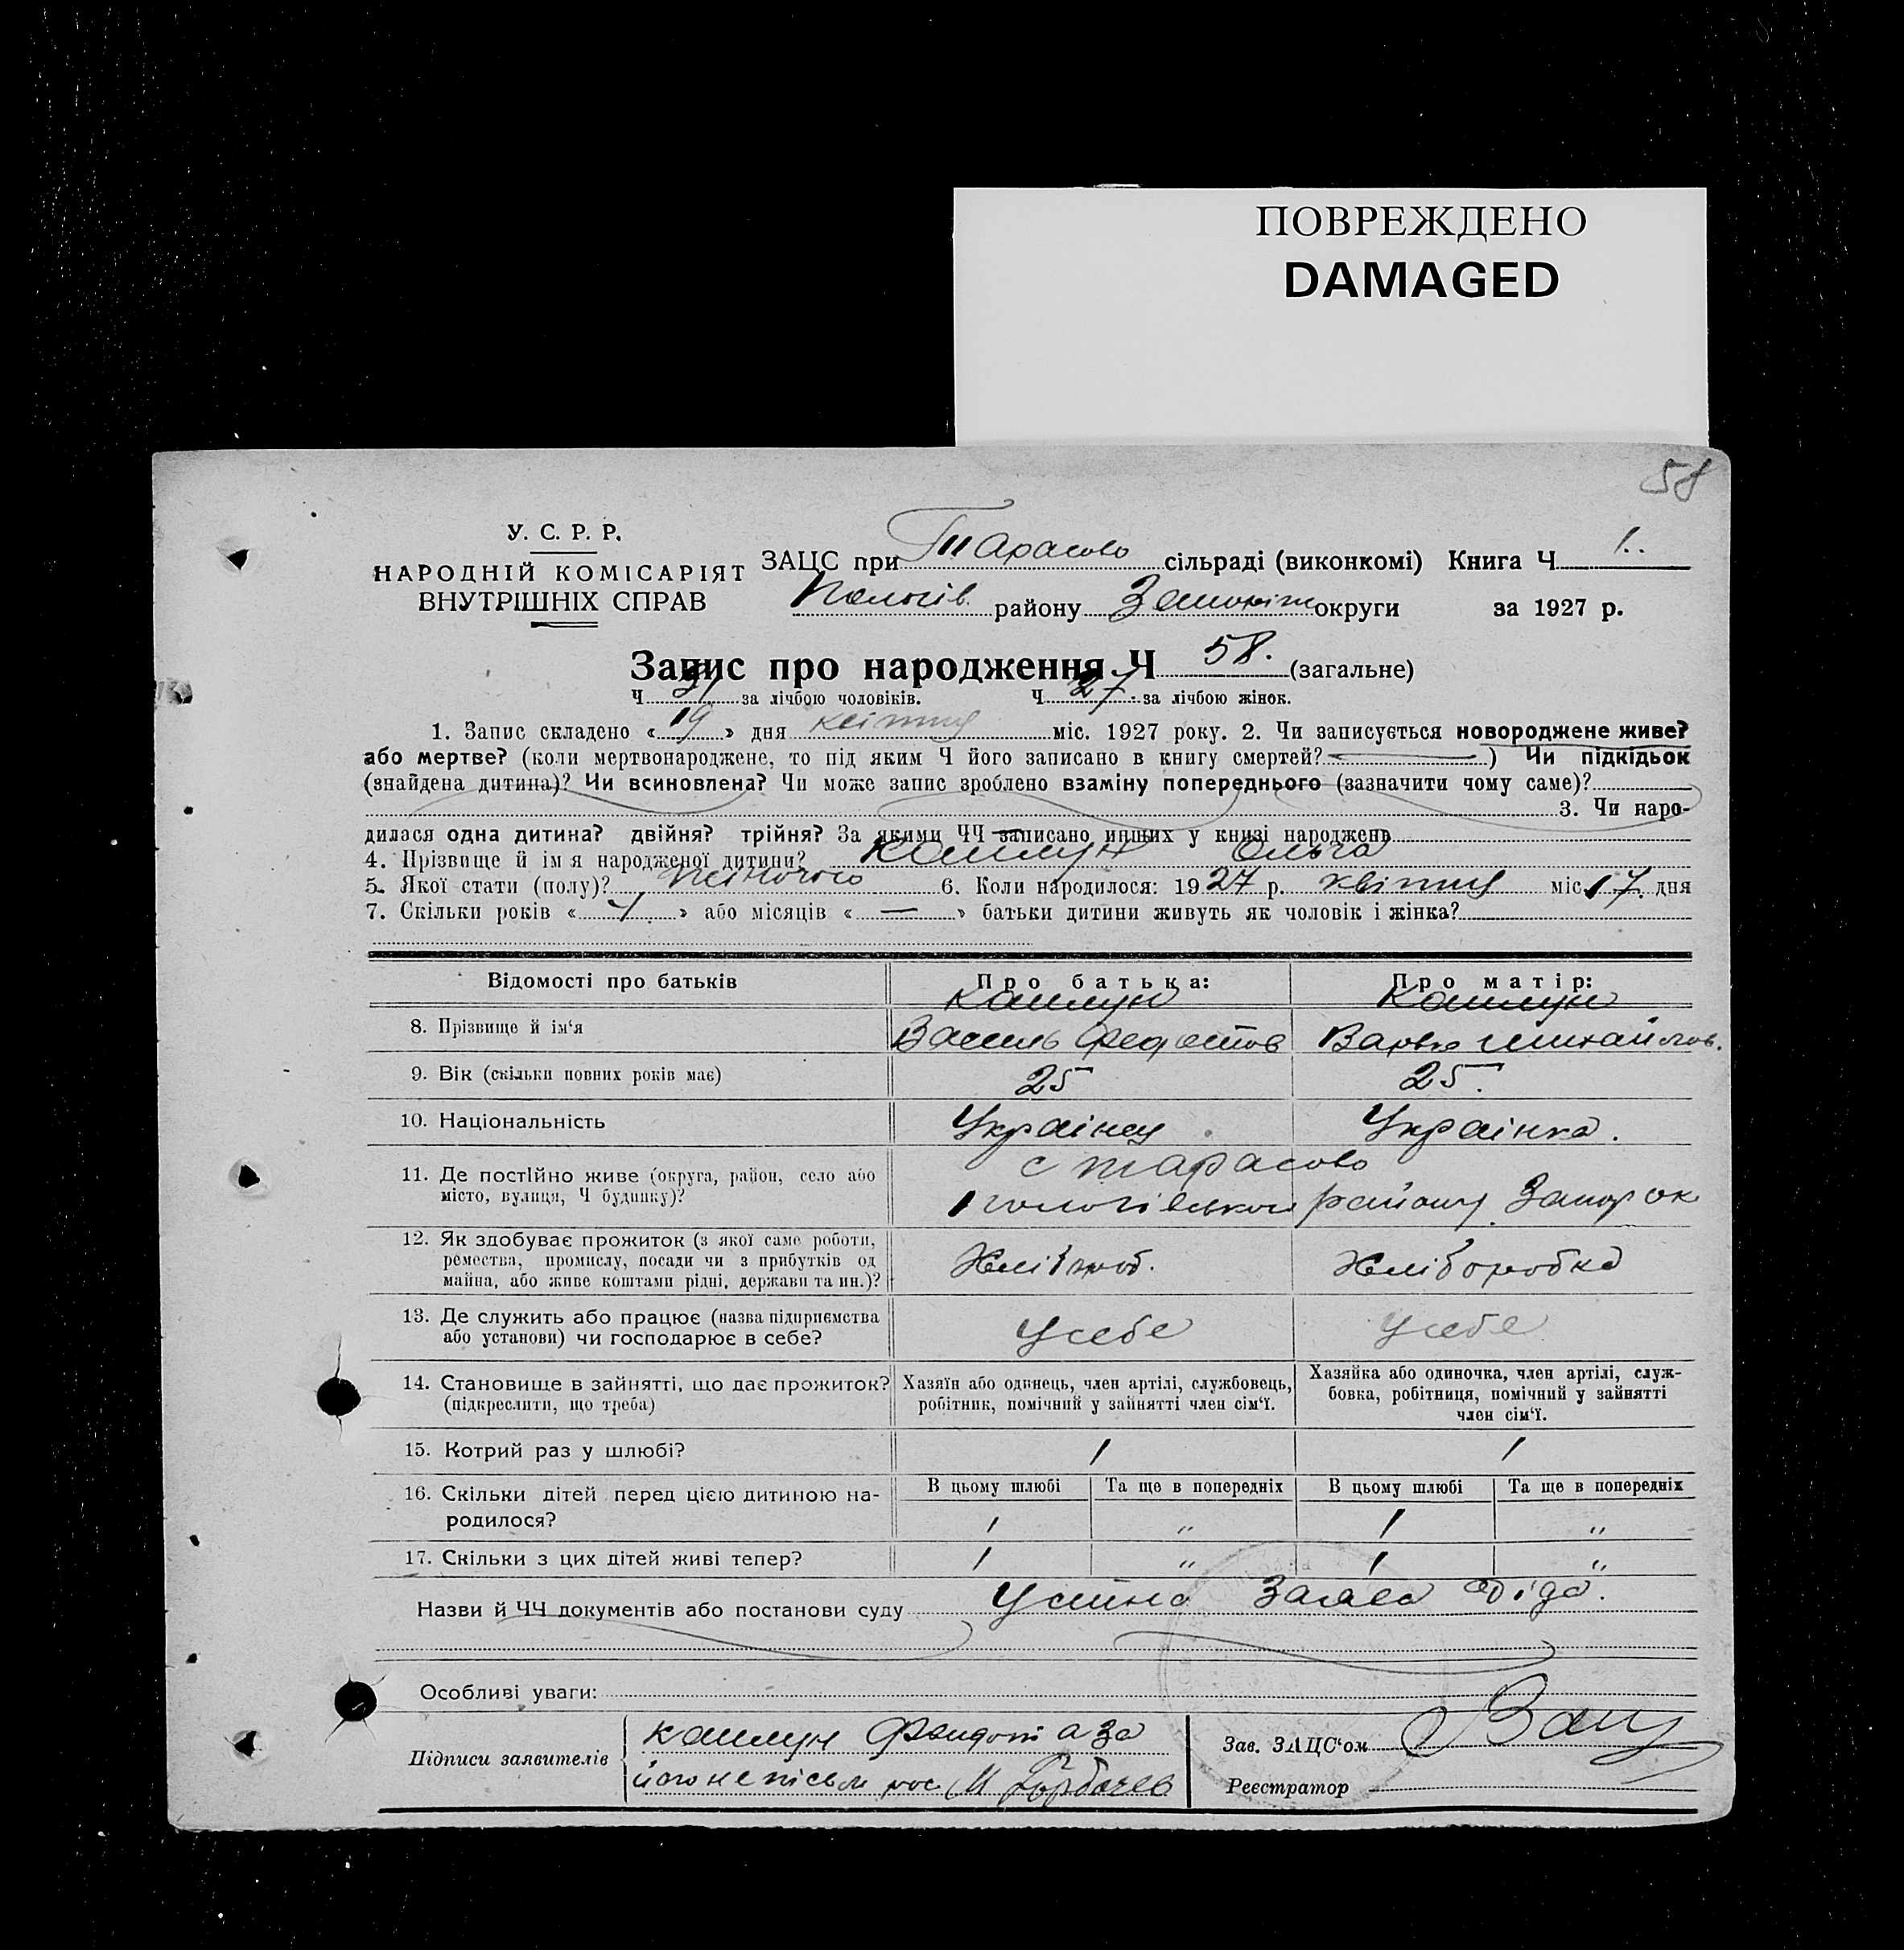 ПОВРЕЖДЕНО
DAMAGED
58
У. С. Р. Р.
НАРОДНІЙ КОМІСАРІЯТ
ВНУТРІШНІХ СПРАВ
ЗАЦС при Тарасово сільраді (виконкомі) Книга Ч 1..
Пологів. району Запоріж округи за 1927 р.
Запис про народження Ч 58. (загальне)
Ч 31 за лічбою чоловіків. Ч 27. за лічбою жінок.
1. Запис складено « 19 » дня квітня міс. 1927 року. 2. Чи записується новороджене живе?
або мертве? (коли мертвонароджене, то під яким Ч його записано в книгу смертей? —) Чи підкідьок
(знайдена дитина)? Чи всиновлена? Чи може запис зроблено взаміну попереднього (зазначити чому саме)?
3. Чи наро-
дилася одна дитина? двійня? трійня? За якими ЧЧ записано инших у книзі народжень
4. Прізвище й ім'я народженої дитини? Кашлун Ольга
5. Якої стати (полу)? жіночого 6. Коли народилося: 1927 р. квітня міс. 17. дня
7. Скільки років « » або місяців « — » батьки дитини живуть як чоловік і жінка?
Відомості про батьків
Про батька:
Про матір:
Кашлун
Кашлун
8. Прізвище й ім'я
Василь Федотов
Варва Михайлов.
9. Вік (скільки повних років має)
25
25.
10. Національність
Українец
Українка.
11. Де постійно живе (округа, район, село або
місто, вулиця, Ч будинку)?
с Тарасово
Пологівського району Запор ок
12. Як здобуває прожиток (з якої саме роботи,
ремества, промислу, посади чи з прибутків од
майна, або живе коштами рідні, держави та ин.)?
Хліброб.
Хлібробка
13. Де служить або працює (назва підприємства
або установи) чи господарює в себе?
У себе
У себе
14. Становище в зайнятті, що дає прожиток?
(підкреслити, що треба)
Хазяїн або одинець, член артілі, службовець,
робітник, помічний у зайнятті член сім'ї.
Хазяйка або одиночка, член артілі, служ-
бовка, робітниця, помічний у зайнятті
член сім'ї.
15. Котрий раз у шлюбі?
1
1
16. Скільки дітей перед цією дитиною на-
родилося?
В цьому шлюбі
Та ще в попередніх
В цьому шлюбі
Та ще в попередніх
1 „ 1 „
17. Скільки з цих дітей живі тепер?
1 „ 1 „
Назви й ЧЧ документів або постанови суду Устна Заява Діда.
Особливі уваги:
Підписи заявителів
Кашлун Федот а за
його неписьм рос М Горбачев
Зав. ЗАЦС'ом
Реєстратор